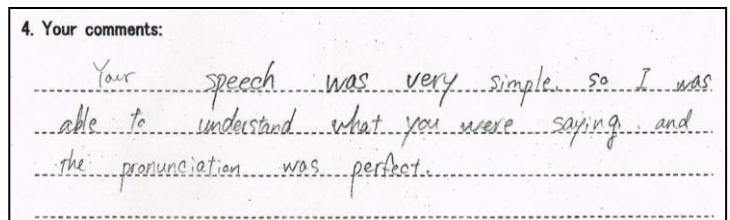 4. Your comments:
Your speech was very simple. so I was
able to understand what you were saying. and
the pronunciation was perfect.